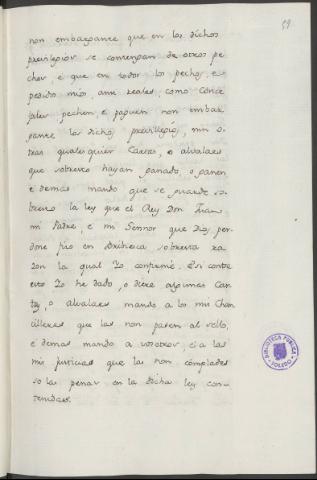 59
non embargante que en los dichos
previlegios se contengan de otros pe
chos, e que en todos los pechos, e
pedidos mios, ansi reales, como Conce
jales pechen e paguen non embar
gante los dichos previllegios, nin o
tras qualesquier Cartas, o alvalaes
que sobrerello hayan ganado, o ganen,
e demas mando que se guarde so
brello la ley que el Rey Don Juan
mi Padre, e mi Sennor que Dios per
done fizo en sobresta ra
zon la qual Yo confirmé. E si contra
esto Yo he dado, o diere algunas Car
tas, o alvalaes mando a los mis Chan
cilleres que las non pasen al sello,
e demas mando a vosotros, e a las
mis justicias que las non complades
so las penas en la dicha ley con
tenidas.
BIBLIOTECA PUBLICA
TOLEDO